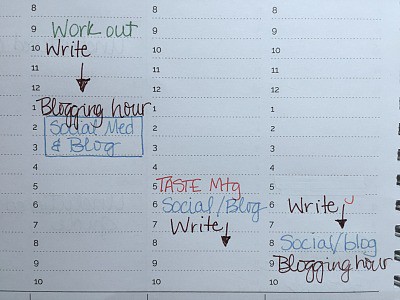 8
9 Work out
10 Write
11
12
1 Blogging hour
2 Social Med
3 & Blog
4
5
6
7
8
9
10
8
9
10
11
12
1
2
3
4
5 TASTE Mtg
6 Social/Blog
7 Write
8
9
10
8
9
10
11
12
1
2
3
4
5
6 Write
7
8 Social/blog
9 Blogging hour
10